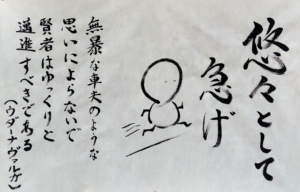 悠々として
急げ
無暴な車夫のような
思いによらないで
賢者はゆっくりと
邁進すべきである
(ウダーナヴァルガ)